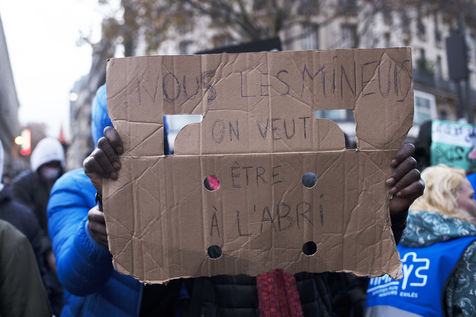 NOUS LES MINEURS
ON VEUT
ÊTRE
À L'ABRI